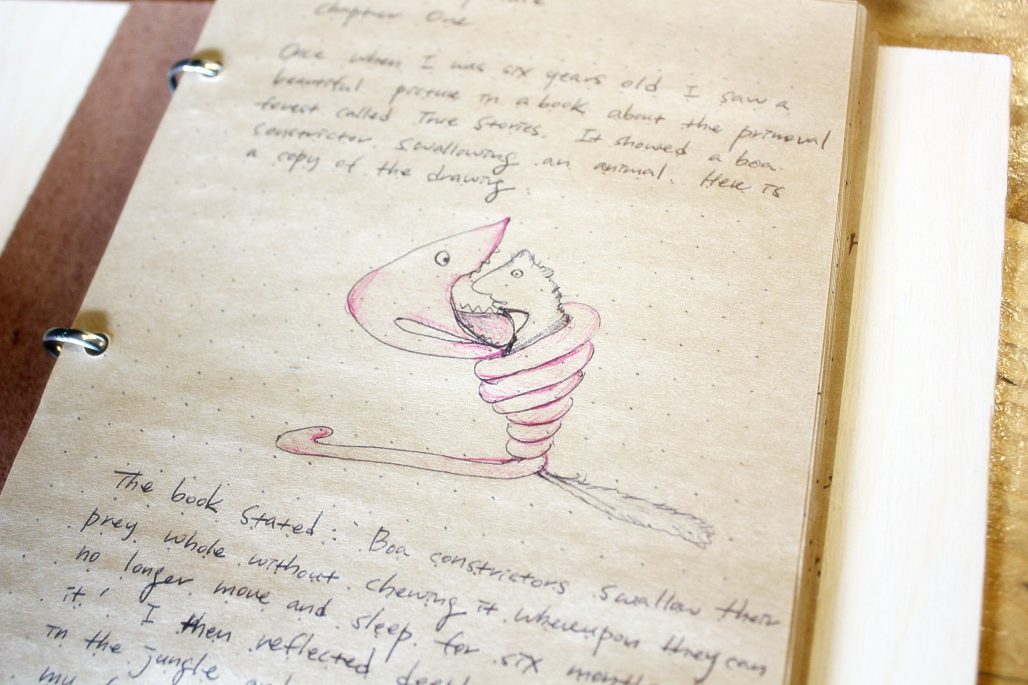 Chapter One
Once when I was six years old I saw a
beautiful picture in a book about the primeval
forest called True Stories. It showed a boa
constrictor swallowing an animal. Here is
a copy of the drawing.
The book stated: "Boa constrictors swallow their
prey whole without chewing it whereupon they can
no longer move and sleep for six
it.' I then reflected
in the jungle
my